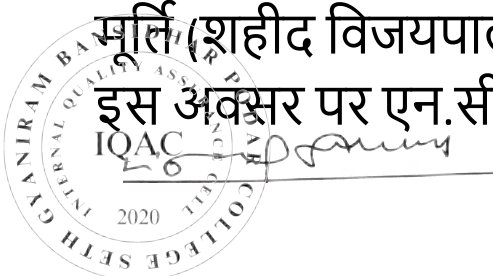 मूर्ति (शहीद विजयपा
इस अवसर पर एन.सी
SETH GYANIRAM BANSIDHAR PODAR COLLEGE
INTERNAL QUALITY ASSURANCE CELL
IQAC
2020